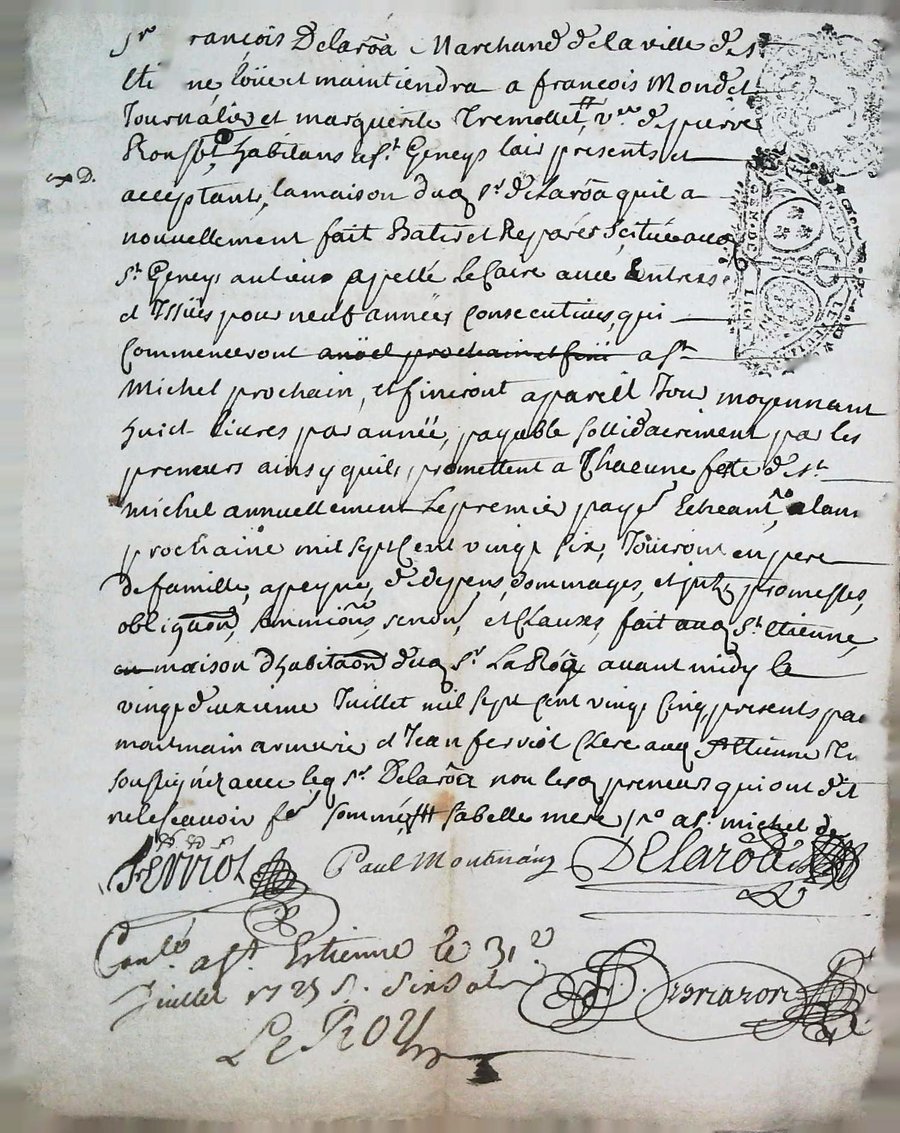 Sr françois Delaroa Marchand de la ville de St
Eti ne loüe et maintiendra a françois Mondet
Journalier et marguerite Tremollet, vve de pierre
habitans a St Geneys lair presents et
exp D.
acceptant, la maison duq Sr delaroa quil a
nouvellement fait Batir et Reparer Scituée auq
St Geneys au lieu apellé Le Caire avec Entrées
et Issües pour neuf années Consecutives, qui
Commenceront anoël prochain et fini a St
Michel prochain, et finiront a pareil Jour moyennant
huict livres par année, payable sollidairement par les
preneurs ainsy quils promettent a Chacune fete de St
michel annuellement Le premier paye Echeant a lan
prochaine mil sept Cent vingt six, Joüiront en pere
de famille, a peyne, de depens, dommages, et promesses,
obligaon, et Clauses, fait auq St Etienne,
maison dhabitaon duq Sr LaRoa avant midy le
vingt deuxieme Juillet mil sept Cent vingt Cinq, presents paul
montmain armurier et Jean ferriol Clerc auq St Etienne
soussignez avec leq Sr Delaroa non lesq preneurs qui ont dit
ne le scavoir de Sommé Isabelle mere a St michel
Ferriol Paul Montmain Delaroa
Conlé a St Estienne le 31e
Juillet 1725 S. Six Sols
LeRoy
GEN. DE LION